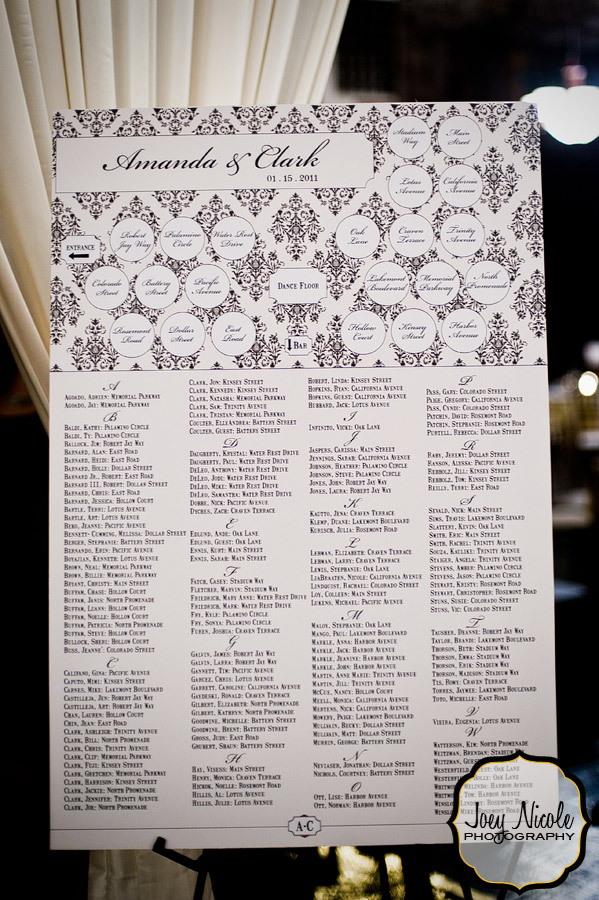 Amanda & Clark
01 . 15 . 2011
Stadium Way
Main Street
Lotus Avenue
California Avenue
Robert Jay Way
Palamino Circle
Water Rest Drive
Oak Lane
Craven Terrace
Trinity Avenue
ENTRANCE
Colorado Street
Battery Street
Pacific Avenue
DANCE FLOOR
Lakemont Boulevard
Memorial Parkway
North Promenade
Rosemont Road
Dollar Street
East Road
BAR
Hollow Court
Kensey Street
Harbor Avenue
A
AGOADO, ADRIEN: MEMORIAL PARKWAY
AGOADO, JAY: MEMORIAL PARKWAY
B
BALDI, KATHY: PALAMINO CIRCLE
BALDI, TY: PALAMINO CIRCLE
BALLOCK, JOE: ROBERT JAY WAY
BARNARD, ALAN: EAST ROAD
BARNARD, HEIDI: EAST ROAD
BARNARD, HOLLY: DOLLAR STREET
BARNARD JR., ROBERT: EAST ROAD
BARNARD III, ROBERT: DOLLAR STREET
BARNARD, CHRIS: EAST ROAD
BARNARD, JESSICA: HOLLOW COURT
BARTLE, TERRI: LOTUS AVENUE
BARTLE, ART: LOTUS AVENUE
BERO, JEANNE: PACIFIC AVENUE
BENNETT-CUMMING, MELISSA: DOLLAR STREET
BERGER, STEPHANIE: BATTERY STREET
BERNANDO, ERIN: PACIFIC AVENUE
BOYAJIAN, KENNETH: LOTUS AVENUE
BROWN, NEAL: MEMORIAL PARKWAY
BROWN, BILLIE: MEMORIAL PARKWAY
BRYANT, CHRISTY: MAIN STREET
BUFFUM, CHASE: HOLLOW COURT
BUFFUM, JANIS: NORTH PROMENADE
BUFFUM, LEANN: HOLLOW COURT
BUFFUM, NOELLE: HOLLOW COURT
BUFFUM, PATRICIA: NORTH PROMENADE
BUFFUM, STEVE: HOLLOW COURT
BULLOCK, SHERI: HOLLOW COURT
BUSS, JEANNE': COLORADO STREET
C
CALIFANO, GINA: PACIFIC AVENUE
CAPUTO, MIMI: KINSEY STREET
CARNES, MIKE: LAKEMONT BOULEVARD
CASTILLEJA, JEN: ROBERT JAY WAY
CASTILLEJA, ART: ROBERT JAY WAY
CHAN, LAUREN: HOLLOW COURT
CHIN, JEAN: EAST ROAD
CLARK, ASHLEIGH: TRINITY AVENUE
CLARK, BILL: NORTH PROMENADE
CLARK, CHRIS: TRINITY AVENUE
CLARK, CLIFF: MEMORIAL PARKWAY
CLARK, FUJI: KINSEY STREET
CLARK, GRETCHEN: MEMORIAL PARKWAY
CLARK, HARRISON: KINSEY STREET
CLARK, JACKIE: NORTH PROMENADE
CLARK, JENNIFER: TRINITY AVENUE
CLARK, JOE: NORTH PROMENADE
CLARK, JON: KINSEY STREET
CLARK, KENNEDY: KINSEY STREET
CLARK, NATASHA: MEMORIAL PARKWAY
CLARK, SAM: TRINITY AVENUE
CLARK, TRISTAN: MEMORIAL PARKWAY
COULTER, ELIZANDRA: BATTERY STREET
COULTER, GUEST: BATTERY STREET
D
DAUGHERTY, KRYSTAL: WATER REST DRIVE
DAUGHERTY, PAUL: WATER REST DRIVE
DELEO, ANTHONY: WATER REST DRIVE
DELEO, JODI: WATER REST DRIVE
DELEO, MIKE: WATER REST DRIVE
DELEO, SAMANTHA: WATER REST DRIVE
DOBBE, NICK: PACIFIC AVENUE
DYCHES, ZACK: CRAVEN TERRACE
E
EDLUND, ANDE: OAK LANE
EDLUND, GUEST: OAK LANE
ENNIS, KURT: MAIN STREET
ENNIS, SARAH: MAIN STREET
F
FATCH, CASEY: STADIUM WAY
FLETCHER, MARVIN: STADIUM WAY
FRIEDRICH, MARY ANNE: WATER REST DRIVE
FRIEDRICH, MARK: WATER REST DRIVE
FRY, KYLE: PALAMINO CIRCLE
FRY, SONYA: PALAMINO CIRCLE
FUREN, JOSHUA: CRAVEN TERRACE
G
GALVIN, JAMES: ROBERT JAY WAY
GALVIN, LARRA: ROBERT JAY WAY
GANNETT, TIM: PACIFIC AVENUE
GARCEZ, CHRIS: LOTUS AVENUE
GARRETT, CAROLINE: CALIFORNIA AVENUE
GAYDESKI, RONALD: CRAVEN TERRACE
GILBERT, ELIZABETH: NORTH PROMENADE
GILBERT, KATHRYN: NORTH PROMENADE
GOODWINE, MICHELLE: BATTERY STREET
GOODWINE, BRENT: BATTERY STREET
GROSS, JUDY: EAST ROAD
GRUBERT, SHAUN: BATTERY STREET
H
HAY, VENESS: MAIN STREET
HENRY, MONICA: CRAVEN TERRACE
HICKOK, NOELLE: ROSEMONT ROAD
HILLIS, AL: LOTUS AVENUE
HILLIS, JULIE: LOTUS AVENUE
HOBERT, LINDA: KINSEY STREET
HOPKINS, RYAN: CALIFORNIA AVENUE
HOPKINS, GUEST: CALIFORNIA AVENUE
HUBBARD, JACK: LOTUS AVENUE
I
INFINITO, VICKI: OAK LANE
J
JASPERS, CARISSA: MAIN STREET
JENNINGS, SARAH: CALIFORNIA AVENUE
JOHNSON, HEATHER: PALAMINO CIRCLE
JOHNSON, STEVE: PALAMINO CIRCLE
JONES, JOHN: ROBERT JAY WAY
JONES, LAURA: ROBERT JAY WAY
K
KAUTTO, JENA: CRAVEN TERRACE
KLEMP, DUANE: LAKEMONT BOULEVARD
KURISCH, JULIA: ROSEMONT ROAD
L
LEHMAN, ELIZABETH: CRAVEN TERRACE
LEHMAN, LARRY: CRAVEN TERRACE
LEWIS, STEPHANIE: OAK LANE
LIABRAATEN, NICOLE: CALIFORNIA AVENUE
LINDQUIST, RACHAEL: COLORADO STREET
LOY, COLLEEN: MAIN STREET
LUKENS, MICHAEL: PACIFIC AVENUE
M
MALOY, STEPHANIE: OAK LANE
MANGO, PAUL: LAKEMONT BOULEVARD
MARKLE, ANNA: HARBOR AVENUE
MARKLE, JACK: HARBOR AVENUE
MARKLE, JEANINE: HARBOR AVENUE
MARKLE, JOHN: HARBOR AVENUE
MARTIN, ANNE MARIE: TRINITY AVENUE
MARTIN, JILL: TRINITY AVENUE
MCCUE, NANCY: HOLLOW COURT
MEELL, MONICA: CALIFORNIA AVENUE
MERTENS, NICK: CALIFORNIA AVENUE
MOWERY, PAIGE: LAKEMONT BOULEVARD
MULIVAIN, BECKY: DOLLAR STREET
MULIVAIN, MATT: DOLLAR STREET
MURRIN, GEORGE: BATTERY STREET
N
NEVIASER, JONATHAN: DOLLAR STREET
NICHOLS, COURTNEY: BATTERY STREET
O
OTT, LISE: HARBOR AVENUE
OTT, NORMAN: HARBOR AVENUE
P
PASS, GARY: COLORADO STREET
PAIGE, GREGORY: CALIFORNIA AVENUE
PASS, CYNDI: COLORADO STREET
PATCHIN, DAVID: ROSEMONT ROAD
PATCHIN, STEPHANIE: ROSEMONT ROAD
PURTELL, REBECCA: DOLLAR STREET
R
RABY, JEREMY: DOLLAR STREET
RANSON, ALYSSA: PACIFIC AVENUE
REBHOLZ, JILL: KINSEY STREET
REBHOLZ, TOM: KINSEY STREET
REILLY, TERRI: EAST ROAD
S
SIVALD, NICK: MAIN STREET
SIMS, TRAVIS: LAKEMONT BOULEVARD
SLATTERY, KEVIN: OAK LANE
SMITH, ERIC: MAIN STREET
SMITH, RACHEL: TRINITY AVENUE
SOUZA, KALLIKE: TRINITY AVENUE
STAIGER, ANGELA: TRINITY AVENUE
STEVENS, AMBER: PALAMINO CIRCLE
STEVENS, JASON: PALAMINO CIRCLE
STEWART, KRISTY: ROSEMONT ROAD
STEWART, CHRISTOPHER: ROSEMONT ROAD
STUNS, SUSIE: COLORADO STREET
STUNS, VIC: COLORADO STREET
T
TAUSHER, DEANNE: ROBERT JAY WAY
TAYLOR, BRANDI: LAKEMONT BOULEVARD
THORSON, BETH: STADIUM WAY
THORSON, EMMA: STADIUM WAY
THORSON, ERIK: STADIUM WAY
THORSON, MADISON: STADIUM WAY
TIS, ROMY: CRAVEN TERRACE
TORRES, JAYMEE: LAKEMONT BOULEVARD
TOTO, MICHELLE: EAST ROAD
V
VIEIRA, EUGENIA: LOTUS AVENUE
W
WATTERSON, KIM: NORTH PROMENADE
WEITZMAN, BRENDAN:
A-C
Joey Nicole
PHOTOGRAPHY